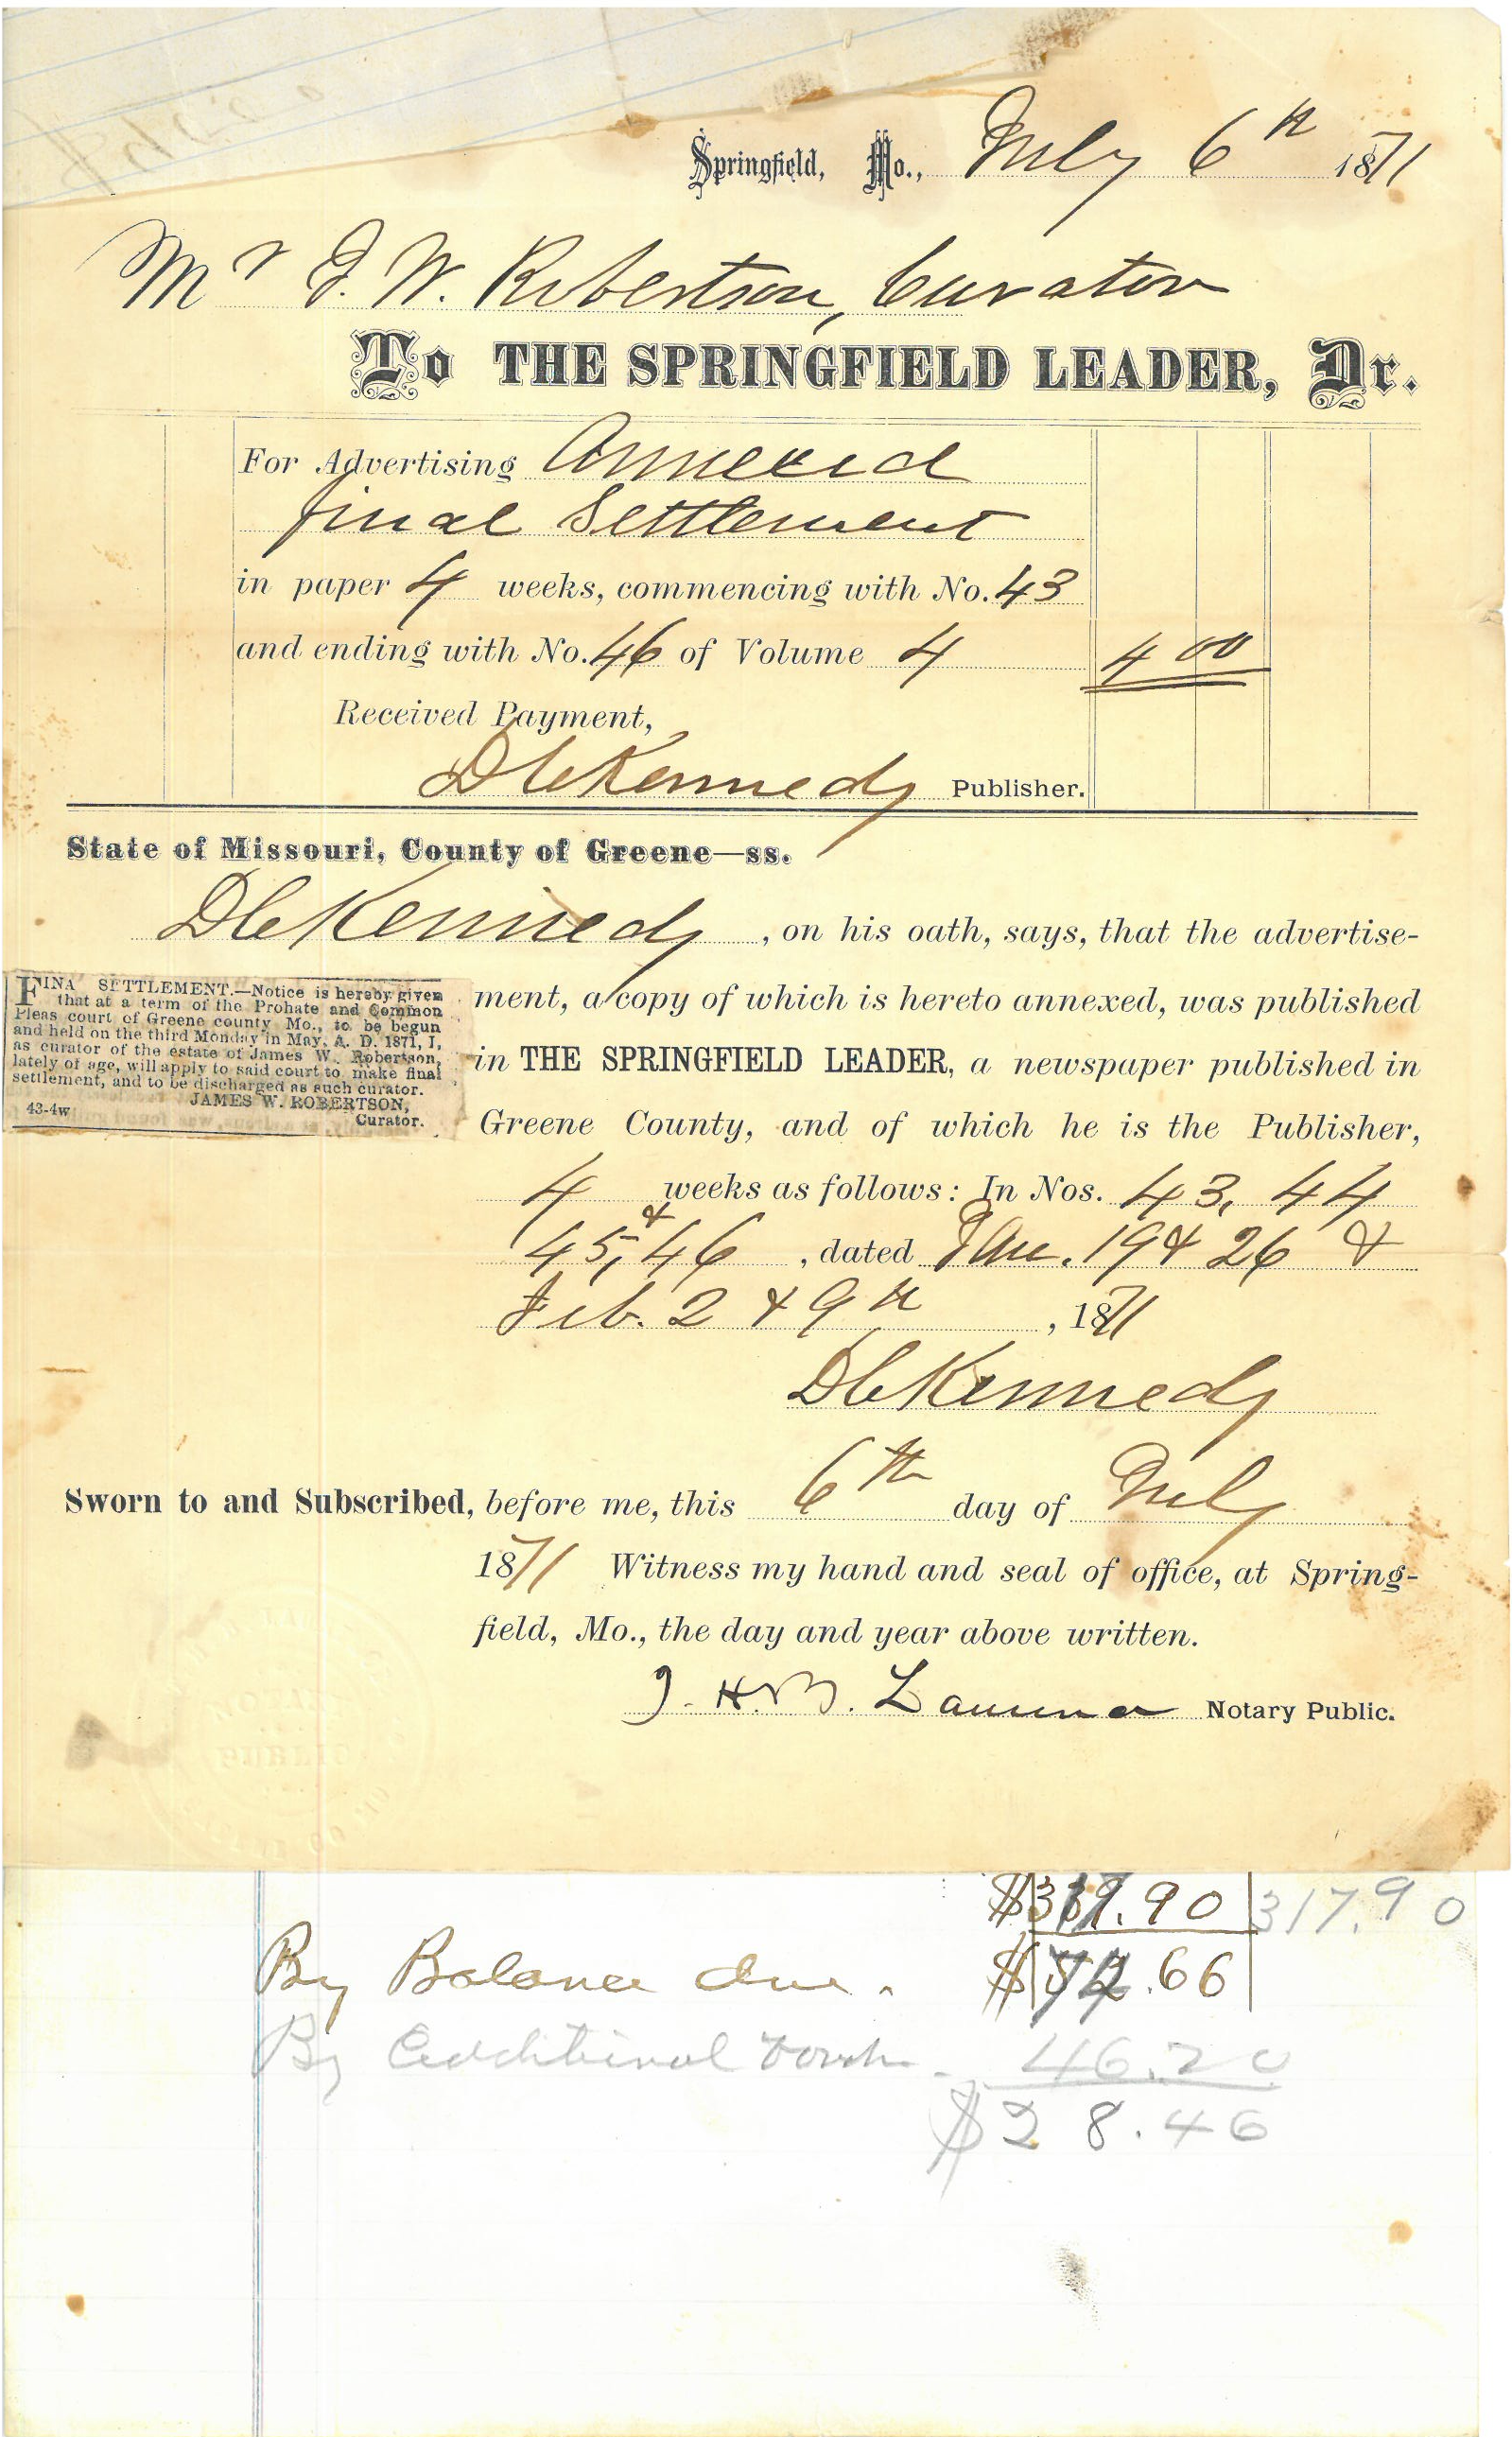 Springfield, Mo., July 6th 1871
Mr J. W. Robertson, Curator
To THE SPRINGFIELD LEADER, Dr.
For Advertising Annexed
final Settlement
in paper 4 weeks, commencing with No. 43
and ending with No. 46 of Volume 4 4 00
Received Payment,
D C Kennedy Publisher.
State of Missouri, County of Greene—ss.
D C Kennedy, on his oath, says, that the advertise-
ment, a copy of which is hereto annexed, was published
in THE SPRINGFIELD LEADER, a newspaper published in
Greene County, and of which he is the Publisher,
4 weeks as follows: In Nos. 43, 44
45, & 46, dated Jan. 19 & 26 &
Feb. 2 & 9th, 1871
D C Kennedy
FINA SETTLEMENT.—Notice is hereby given
that at a term of the Probate and Common
Pleas court of Greene county Mo., to be begun
and held on the third Monday in May, A. D. 1871, I,
as curator of the estate of James W. Robertson,
lately of age, will apply to said court to make final
settlement, and to be discharged as such curator.
JAMES W. ROBERTSON,
43-4w Curator.
Sworn to and Subscribed, before me, this 6th day of July
1871 Witness my hand and seal of office, at Spring-
field, Mo., the day and year above written.
J. H. M. Notary Public.
$317.90 317.90
By Balance due. $74.66
By additional 46.20
$28.46